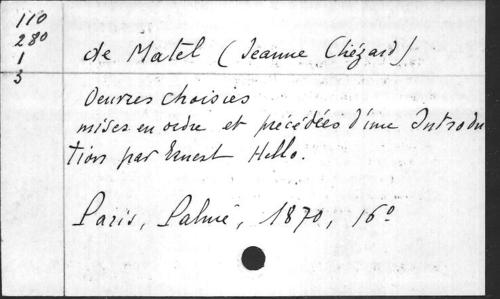 110
280
1
3
de Matel (Jeanne Chézard)
Oeuvres choisies
mises en ordre et précédées d'une Introduc
tion par Ernest Hello.
Paris, Palmé, 1870, 16º